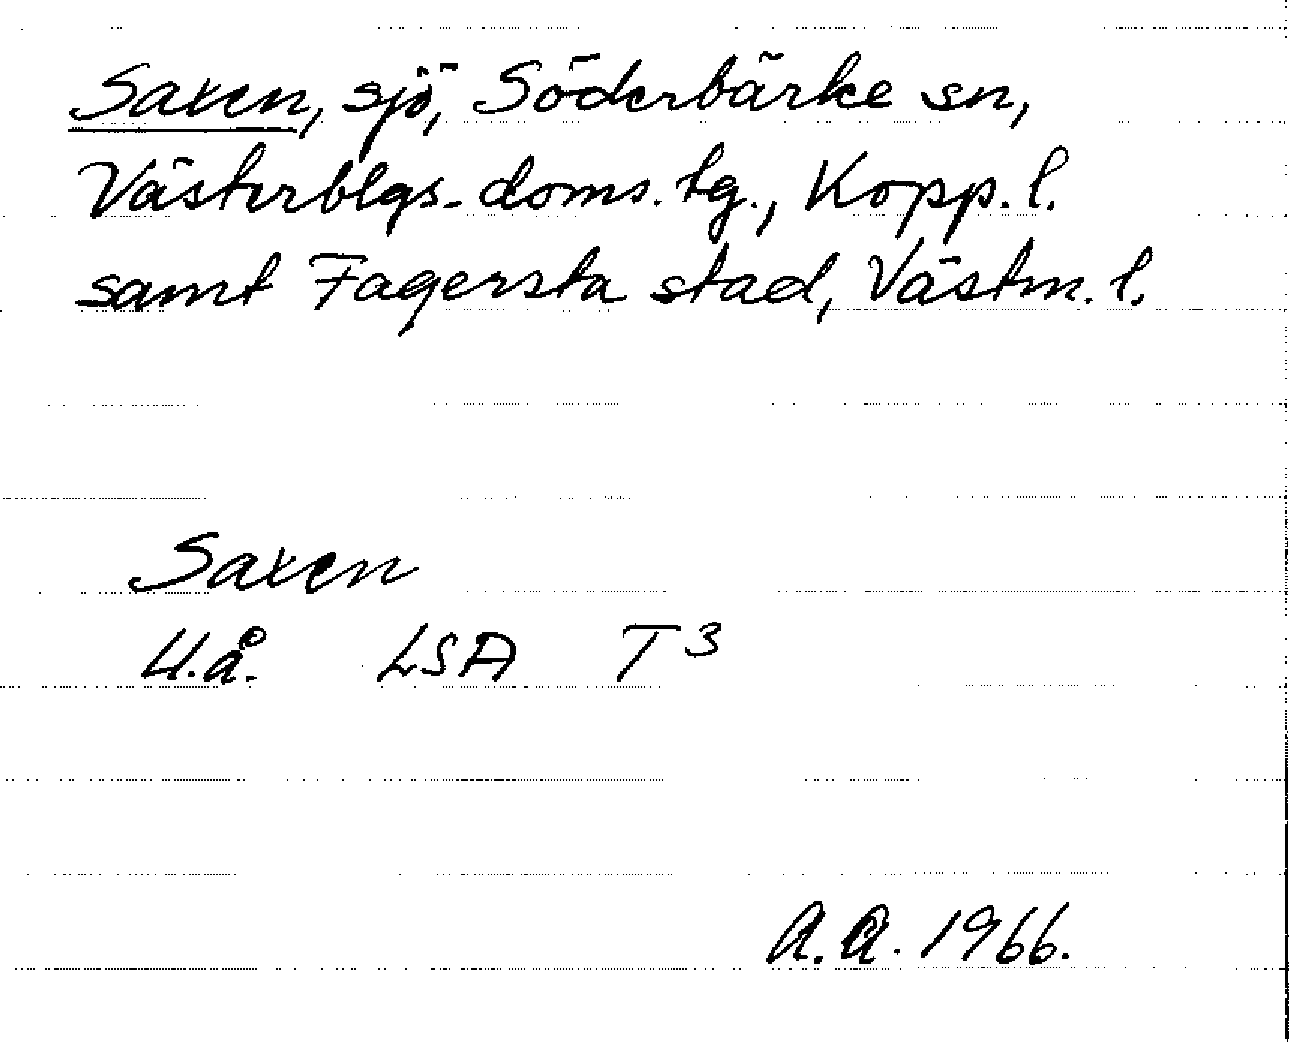 Saxen, sjö, Söderbärke sn,
Västerblgs. doms. tg., Kopp. l.
samt Fagersta stad, Västm. l.
Saxen
U.å. LSA T3
A.A. 1966.